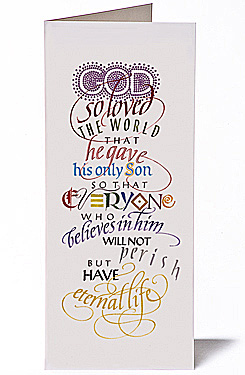 GOD
so loved
THE WORLD
THAT
he gave
his only Son
SO THAT
EVERYONE
WHO
believes in him
WILL NOT
perish
BUT
HAVE
eternal life